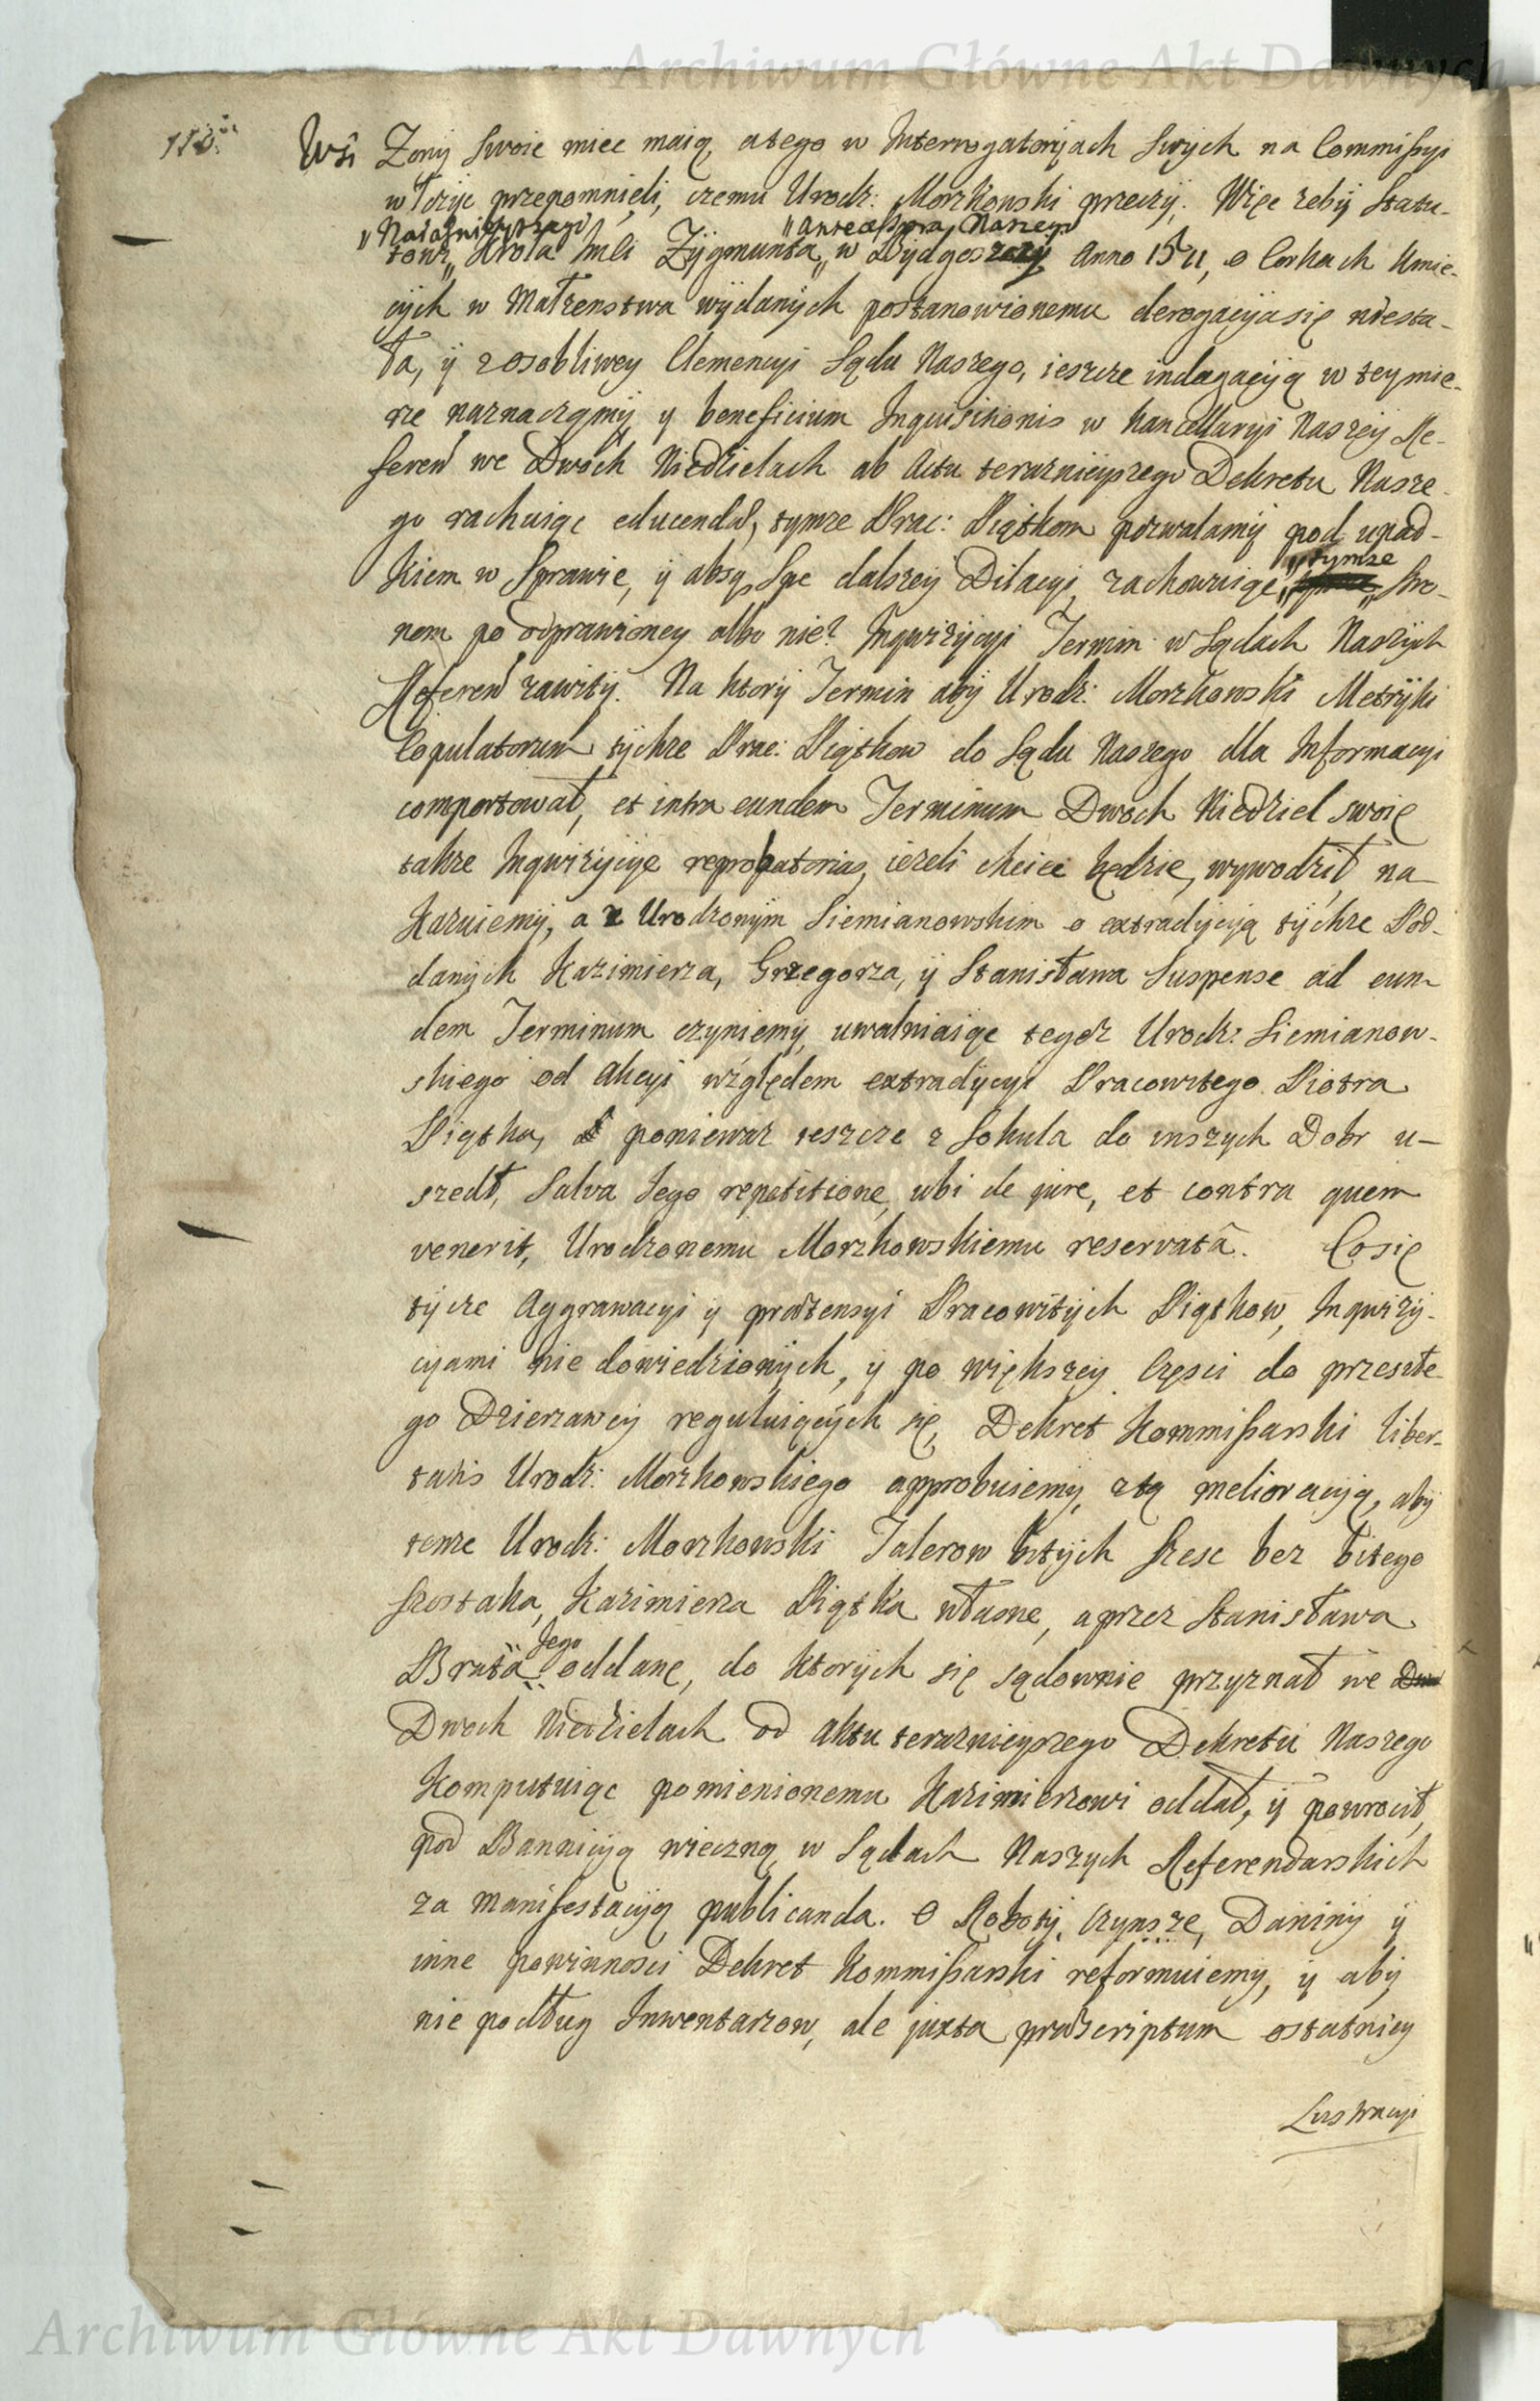 Archiwum Główne Akt Dawnych
113
Wsi Zony swoie miec maią, atego w Interrogatoryach swych na Commissyi
włożyc przepomnieli, czemu Urodz: Morzkowski przeczy. Więc zeby Statu-
„Naiasnieyszego „Antecessora Naszego
towi „ Krola Jmci Zygmunta „ w Bydgoszczy Anno 1511, o Corkach Kmie-
cych w Małzenstwa wydanych postanowionemu derogacyia się niesta-
ła, y z osobliwey Clemencyi Sądu Naszego, ieszcze indagacyią w tey mie-
rze naznaczamy, y beneficium Inquisitionis w Kancellaryi Naszey Re-
feren we Dwoch Niedzielach ab Actu teraznieyszego Dekretu Nasze-
go rachuiąc educendae, tymze Prac: Piątkom pozwalamy pod upad-
kiem w Sprawie, y absq. spe dalszey Dilacyi, zachowuiąc
„tymze
„ Stro-
nom po odprawioney albo nie? Inquizycyi Termin w Sądach Naszych
Referen zawity. Na ktory Termin aby Urodz: Morzkowski Metryki
Copulatorum tychze Prac: Piątkow do Sądu Naszego dla Informacyi
comportował, et intra eundem Terminum Dwoch Niedziel swoię
takze Inqwizycyię reprobatorias, iezeli chciec będzie, wywodził, na-
kazuiemy, a z Urodzonym Siemianowskim o extradycyią tychze Pod-
danych Kazimierza, Grzegorza, y Stanisława Suspense ad eun-
dem Terminum czyniemy, uwalniaiąc tegoz Urodz: Siemianow-
skiego od Akcyi względem extradycyi Pracowitego Piotra
Piątka, poniewaz ieszcze z Sokula do inszych Dobr u-
szedł, Salva Jego repetitione, ubi de jure, et contra quem
venerit, Urodzonemu Morzkowskiemu reservatâ. Co się
tycze Aggrawacyi y praetensyi Pracowitych Piątkow, Inquizy-
cyami nie dowiedzionych, y po większey Częsci do przeszłe-
go Dzierzawcy reguluiących się, Dekret Kommissarski liber-
tatis Urodz: Morzkowskiego approbuiemy, z tą melioracyią, aby
tenze Urodz: Morzkowski Talerow bitych szesc bez bitego
szostaka, Kazimierza Piątka własne, a przez Stanisława
Jego
Brata oddane, do ktorych się sądownie przyznał we
Dwoch Niedzielach od Aktu teraznieyszego Dekretu Naszego
Komputuiąc pomienionemu Kazimierzowi oddał, y powrocił,
pod Bannicyią wieczną w Sądach Naszych Referendarskich
za manifestacyią publicanda. O Roboty, Czynsze, Daniny y
inne powinnosci Dekret Kommissarski reformuiemy, y aby
nie podług Inwentarzow, ale juxta praescriptum ostatniey
Lustracyi
Archiwum Główne Akt Dawnych